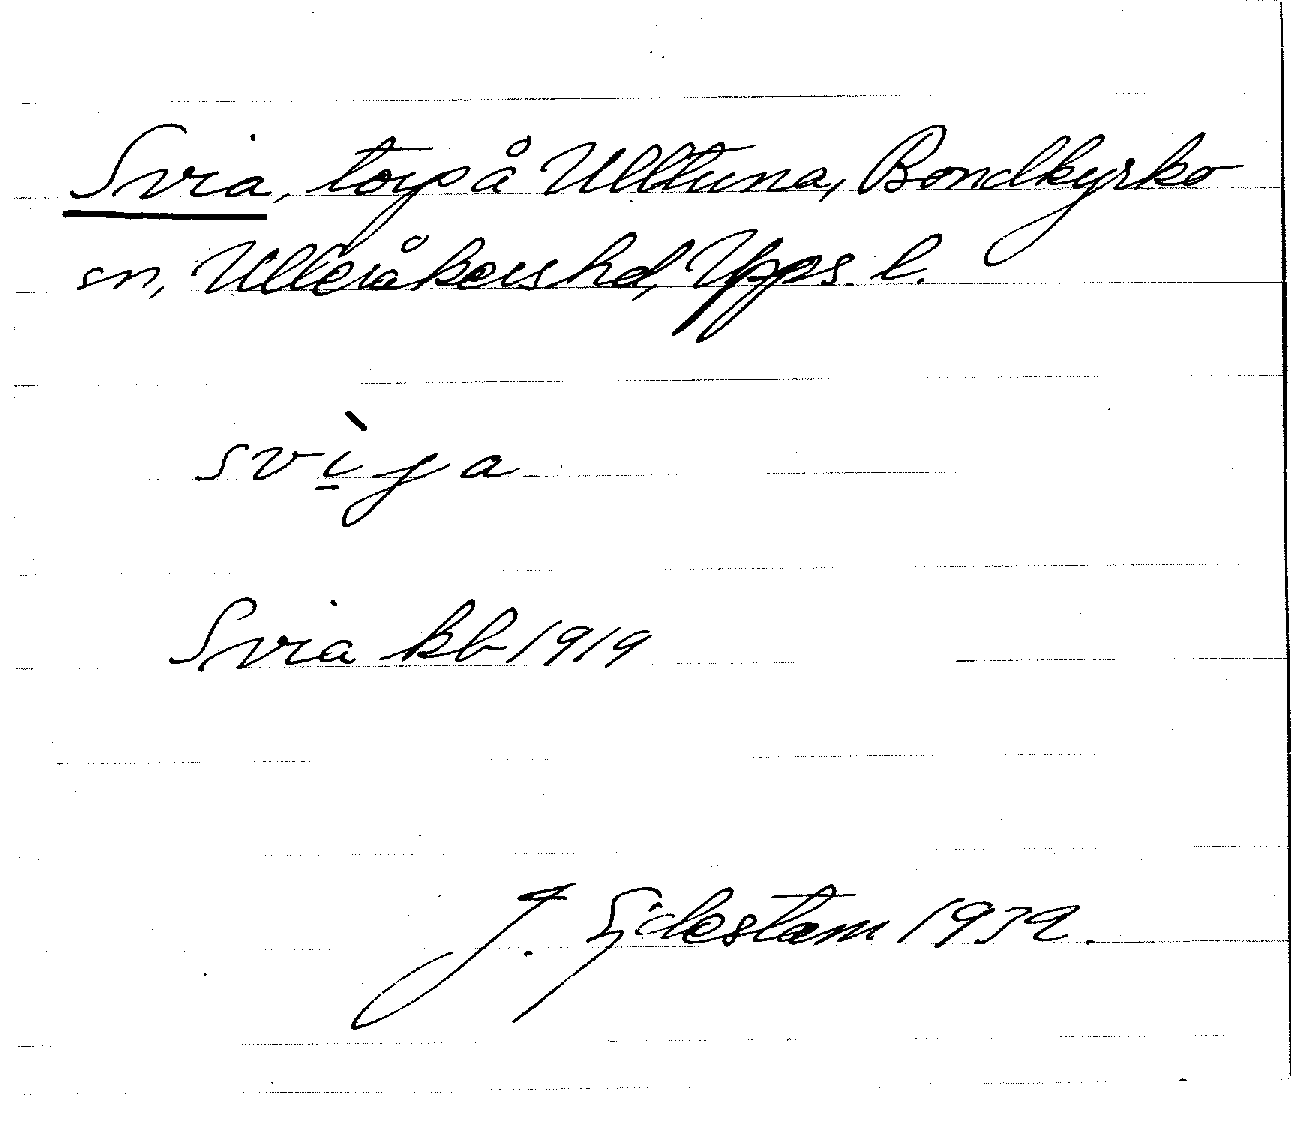 Svia, torp å Ulltuna, Bondkyrko
sn, Ulleråkers hd, Upps. l.
svì̲ja
Svia kb 1919
J. Sjdestam 1932.